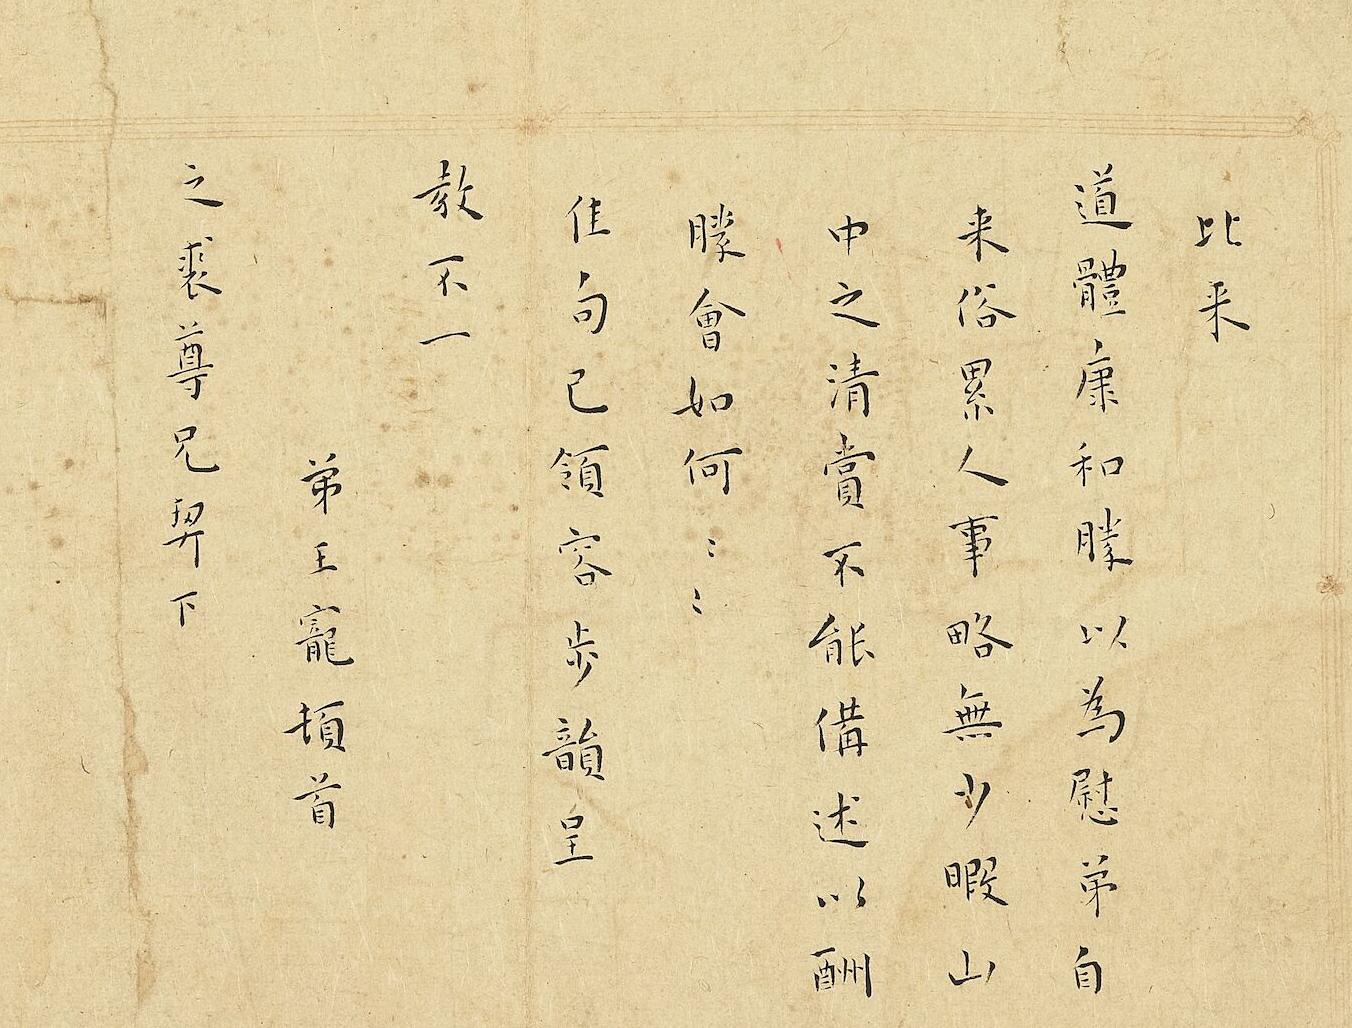 比来
道體康和勝以為慰弟自
来俗累人事略無少暇山
中之清賞不能備述以酬
勝會如何〻〻
佳句已領容步韻呈
教不一
弟王寵頓首
之裘尊兄契下